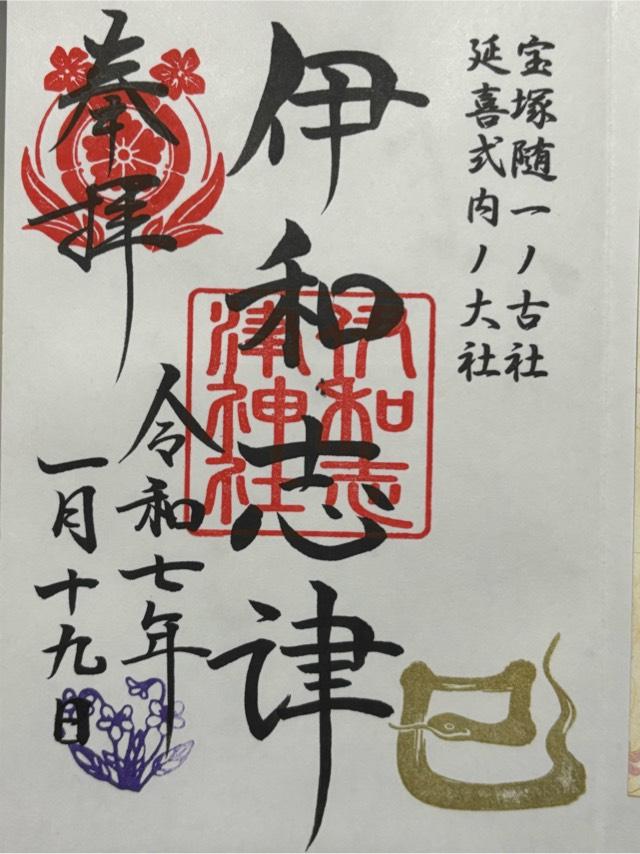 宝塚随一ノ古社
延喜式内ノ大社
伊和志津
伊和志
津神社
奉拝
令和七年
一月十九日
巳